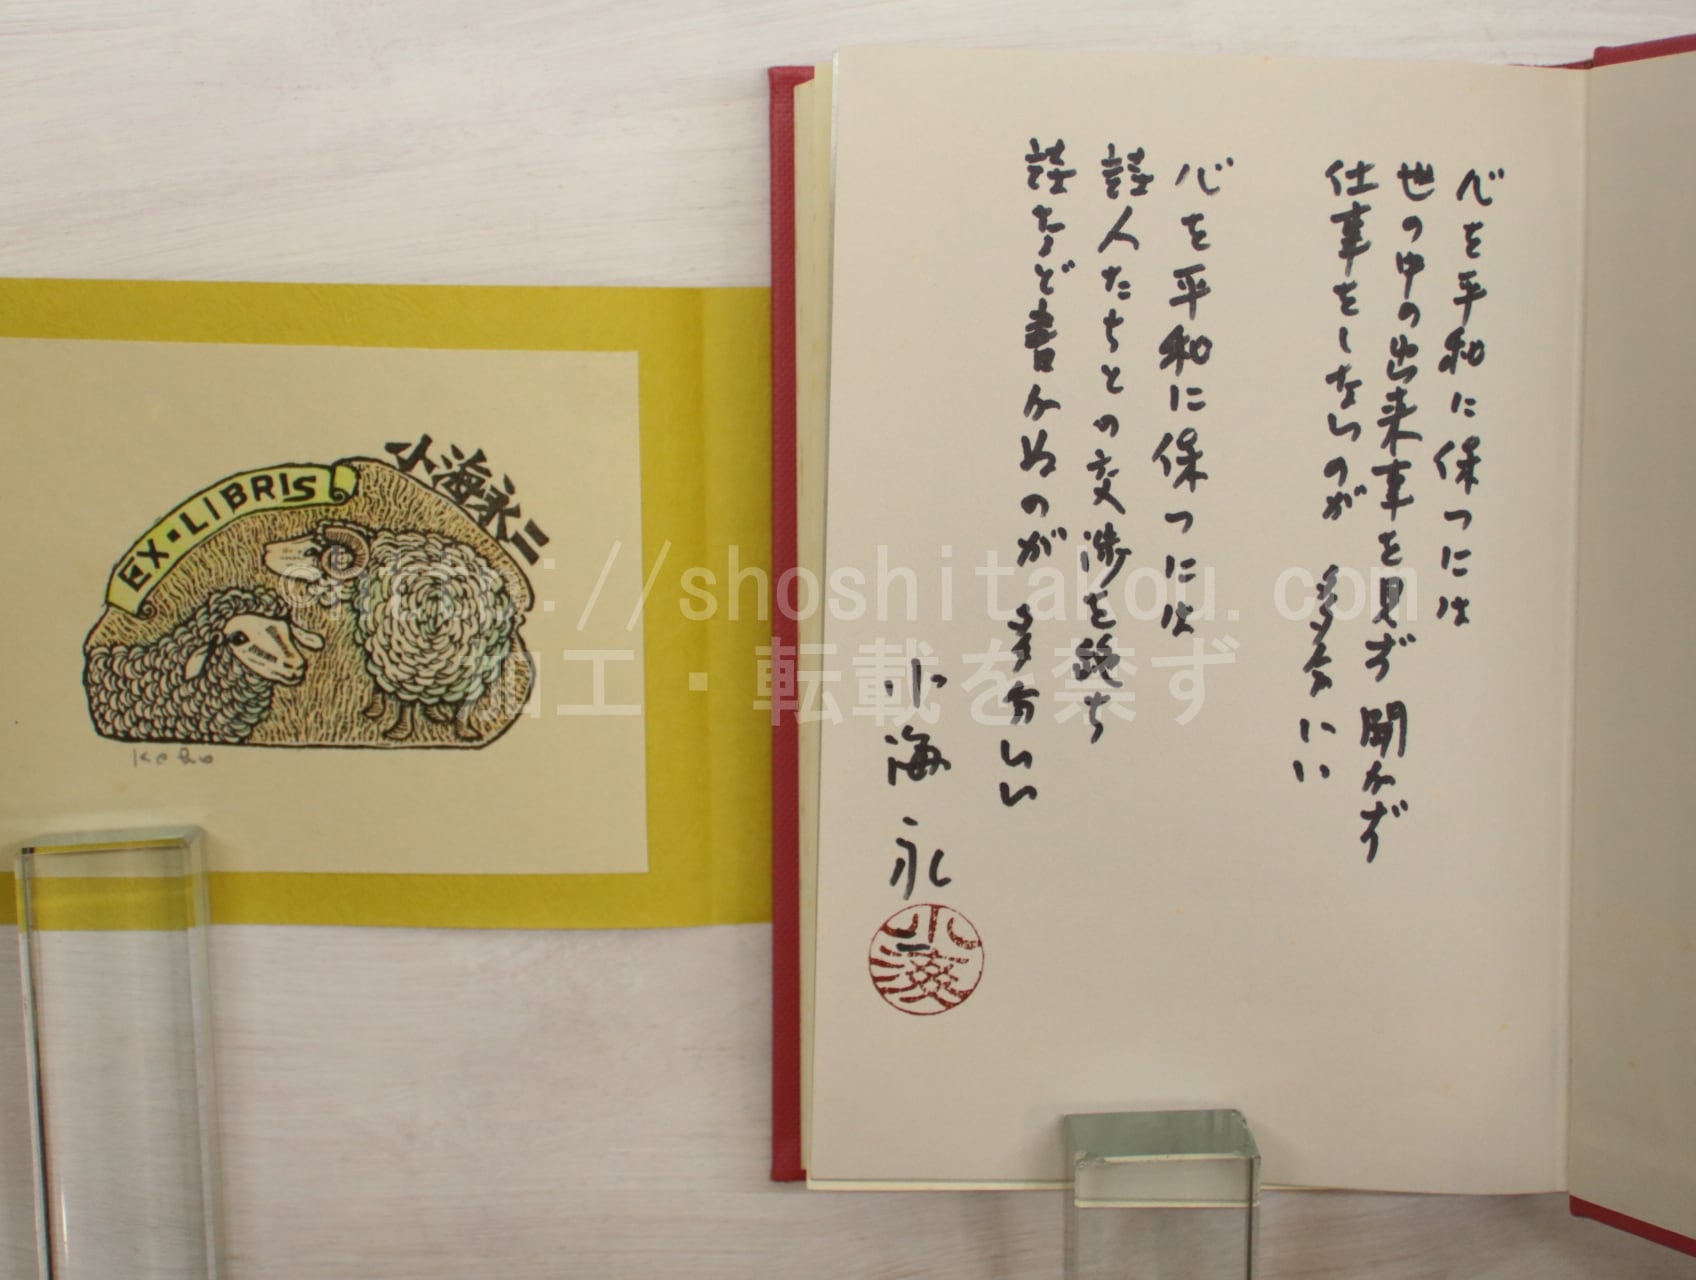 心を平和に保つには
世の中の出来事を見ず 聞かず
仕事をしないのが 多分いい
心を平和に保つには
詩人たちとの交渉を絶ち
詩など書かぬのが 多分いい
小海永二
EX・LIBRIS
小海永二
©http://shoshitakou.com
加工・転載を禁ず